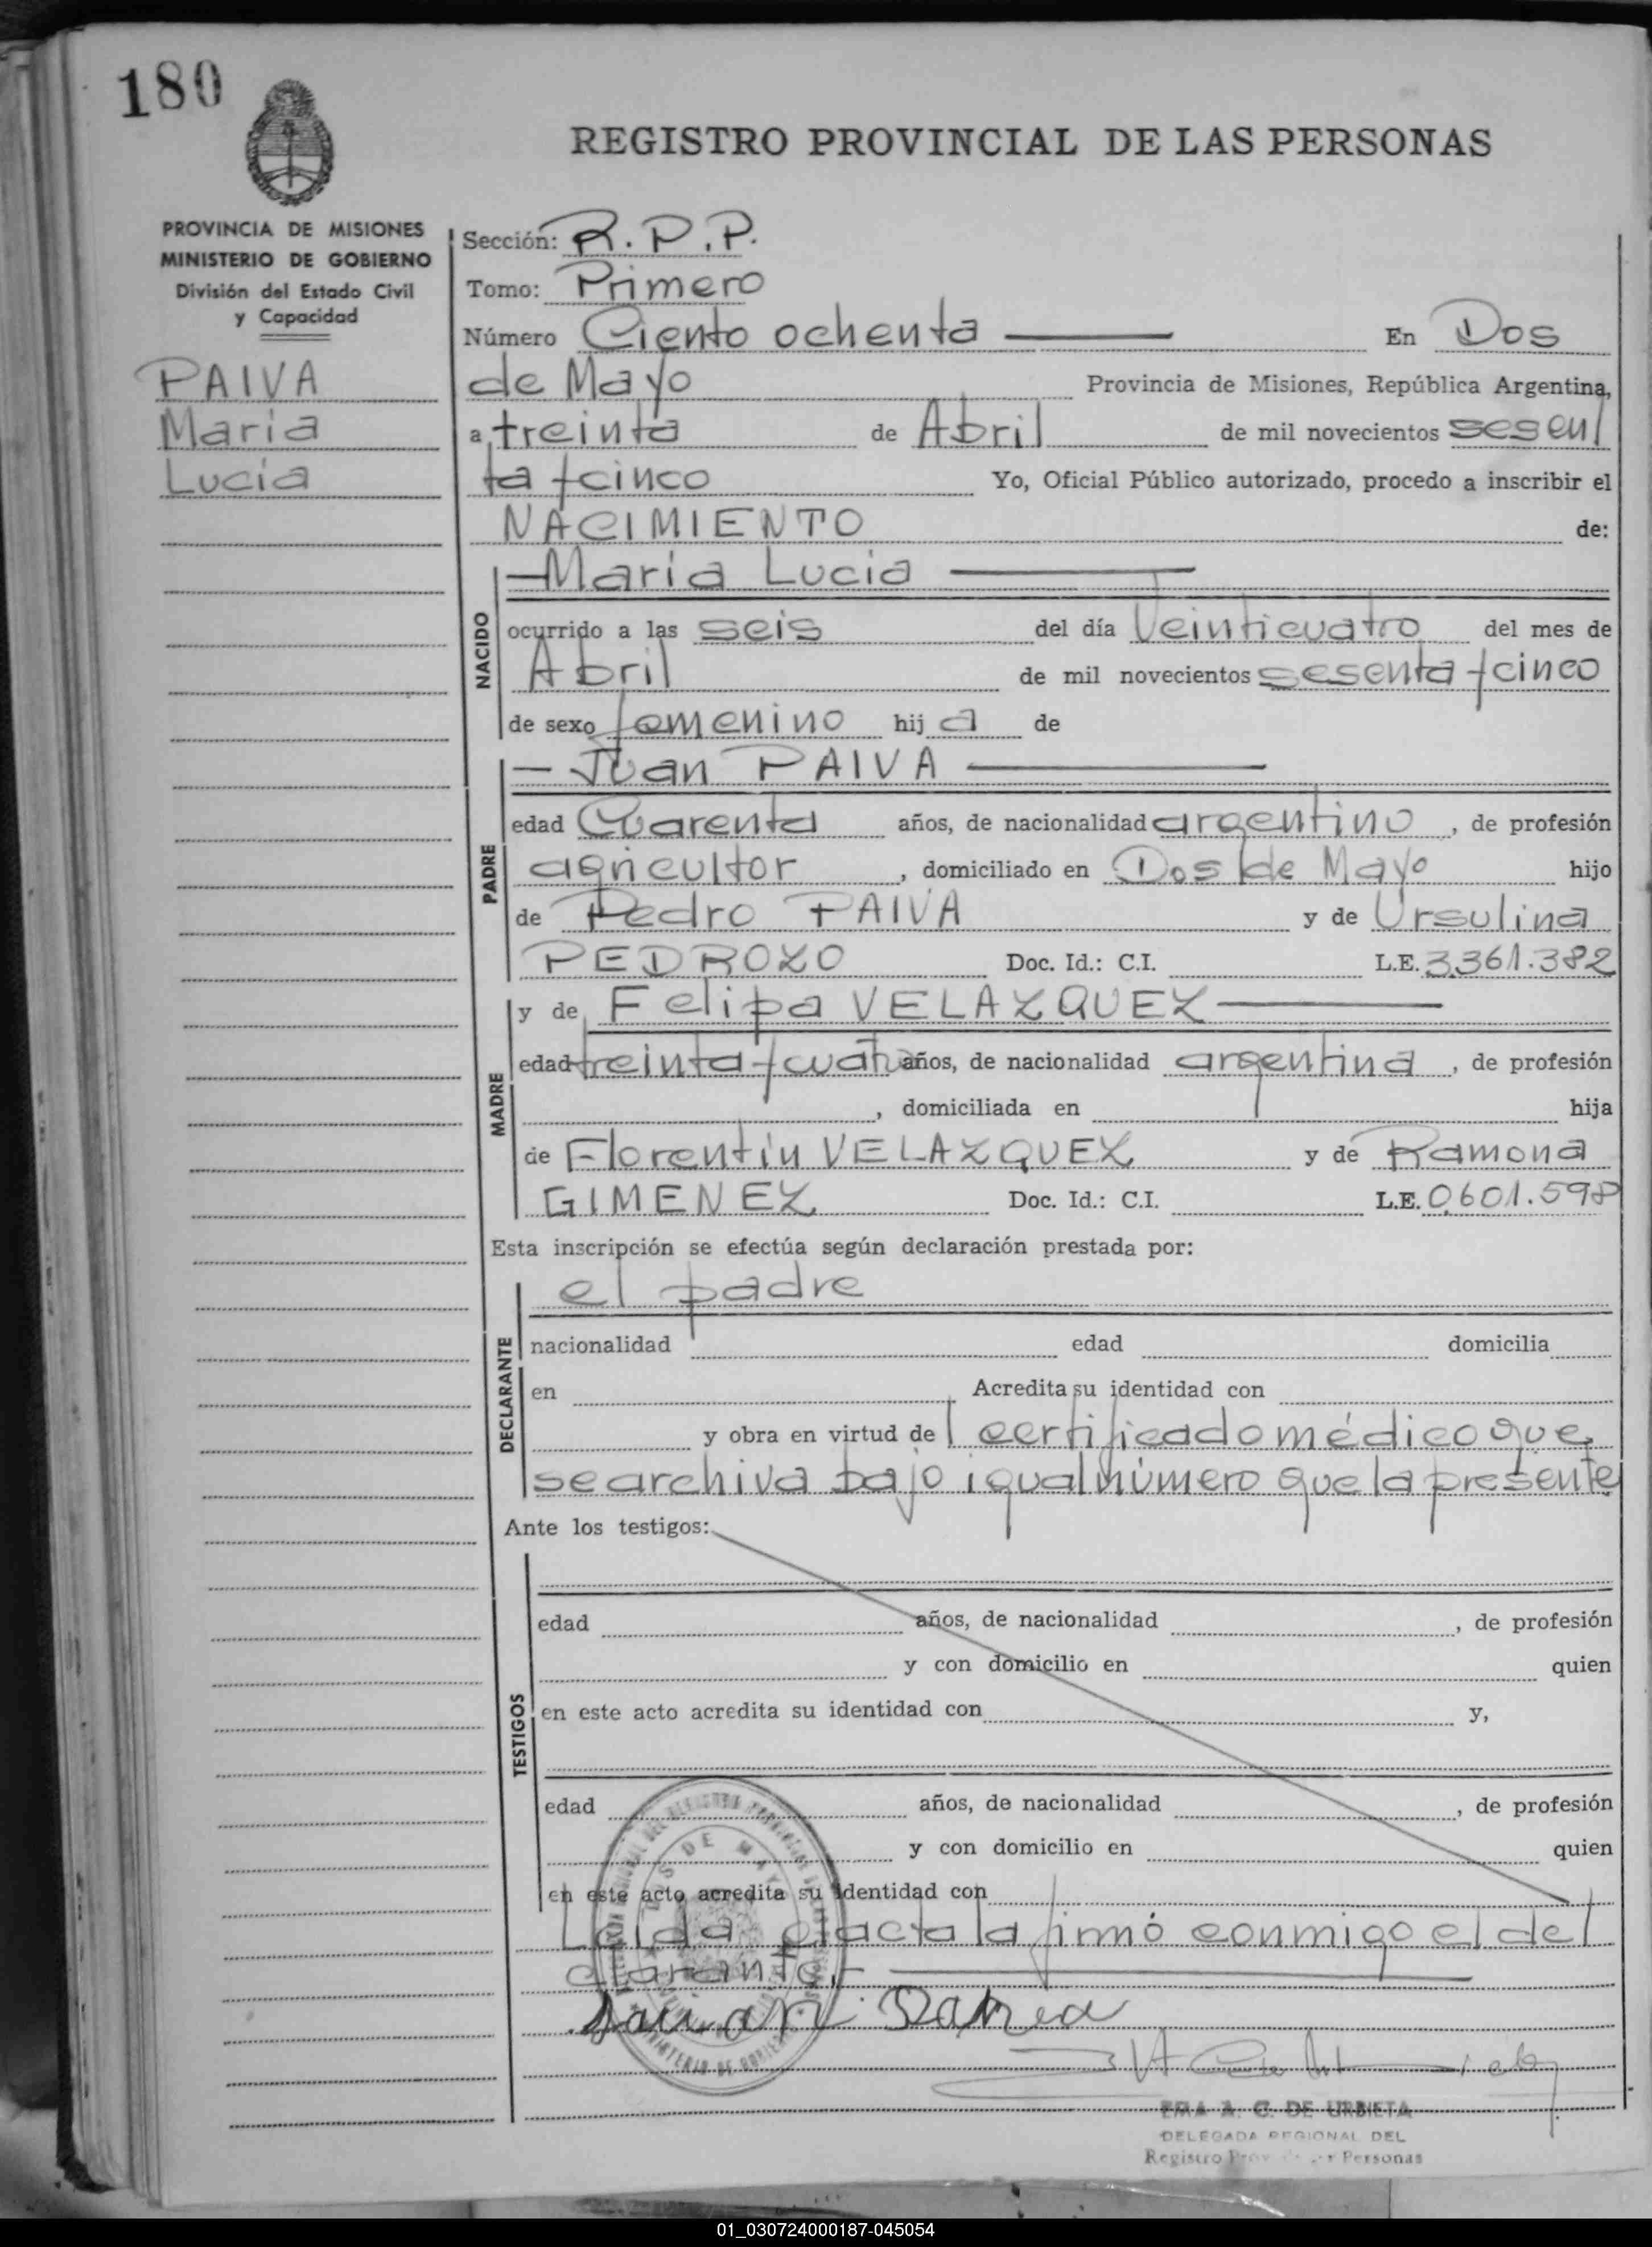 180
REGISTRO PROVINCIAL DE LAS PERSONAS
PROVINCIA DE MISIONES
MINISTERIO DE GOBIERNO
División del Estado Civil
y Capacidad
PAIVA
Maria
Lucia
Sección: R.P.P.
Tomo: Primero
Número Ciento ochenta En Dos
de Mayo Provincia de Misiones, República Argentina,
a treinta de Abril de mil novecientos sesen
ta y cinco Yo, Oficial Público autorizado, procedo a inscribir el
NACIMIENTO de:
NACIDO
Maria Lucia
ocurrido a las seis del día Veinticuatro del mes de
Abril de mil novecientos sesenta y cinco
de sexo femenino hij a de
PADRE
Juan PAIVA
edad Cuarenta años, de nacionalidad argentino, de profesión
agricultor, domiciliado en Dos de Mayo hijo
de Pedro PAIVA y de Ursulina
PEDROZO Doc. Id.: C.I. L.E. 3.361.382
MADRE
y de Felipa VELAZQUEZ
edad treinta y cuatro años, de nacionalidad argentina, de profesión
, domiciliada en hija
de Florentín VELAZQUEZ y de Ramona
GIMENEZ Doc. Id.: C.I. L.E. 0.601.598
Esta inscripción se efectúa según declaración prestada por:
DECLARANTE
el padre
nacionalidad edad domicilia
en Acredita su identidad con
y obra en virtud de certificado médico que
se archiva bajo igual número que la presente
Ante los testigos:
TESTIGOS
edad años, de nacionalidad , de profesión
y con domicilio en quien
en este acto acredita su identidad con y,
edad años, de nacionalidad , de profesión
y con domicilio en quien
en este acto acredita su identidad con
Leida el acta la firmó conmigo el de
clarante.
DOS DE MAYO
MINISTERIO DE GOBIERNO
A. C. DE URBIETA
DELEGADA REGIONAL DEL
Registro Personas
01_030724000187-045054